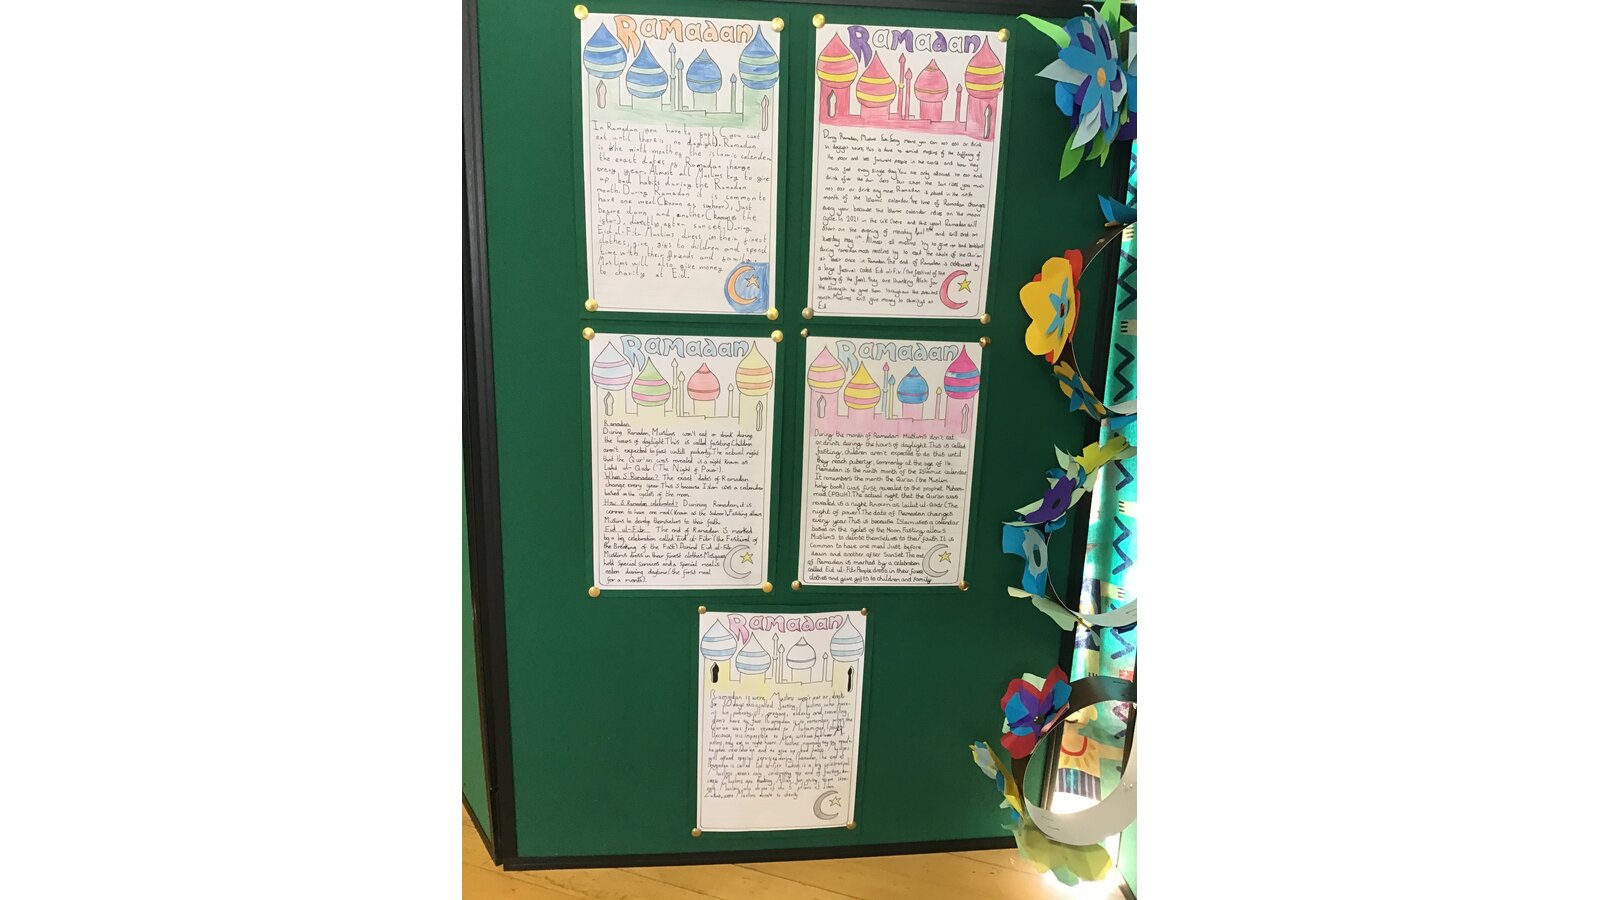 Ramadan
In Ramadan you have to fast (you cant
eat until there is no daylight). Ramadan
is the ninth month of the islamic calender
the exact dates of Ramadan change
every year. Almost all Muslims try to give
up bad habits during the Ramadan
month. During Ramadan it is common to
have one meal (known as suhoor), just
before dawn and another (known as the
iftar), directly after sunset. During
Eid ul-Fitr Muslims dress in their finest
clothes, give gifts to children and spend
time with their friends and family.
Muslims will also give money
to charity at Eid.
Ramadan
During Ramadan, Muslims you can not eat or drink
in daylight hours, this is done to remind muslims of the suffering of
the poor and less fortunate people in the world and how they
much feel every single day. You are only allowed to eat and
drink after the sun sets but when the sun rises you must
not eat or drink any more. Ramadan is placed in the ninth
month of the Islamic calendar. The time of Ramadan changes
every year because the Islamic calendar relies on the moon
cycle. In 2021 in the UK (here and this year) Ramadan will
start on the evening of monday April and will end on
tuesday may Almost all muslims try to give up bad habbits
during ramadan. most muslims try to read the whole of the Qur'an
at least once in Ramadan. The end of Ramadan is celebrated by
a large festival called Eid ul-Fitr (the festival of the
breaking of the fast). They are thanking Allah for
the strength he gave them throughout the
month. Muslims will give money to charitys at
Eid.
Ramadan
Ramadan
During Ramadan, Muslims won't eat or drink during
the hours of daylight. This is called fasting. Children
aren't expected to fast untill puberty. The actual night
that the Qur'an was revealed is a night known as
Lailut ul-Qadr ('The Night of Power').
When is Ramadan? The exact dates of Ramadan
change every year. This is because Islam uses a calendar
based on the cycles of the moon.
How is Ramadan celebrated? During Ramadan, it is
common to have one meal (known as the Suhoor). Fasting allows
Muslims to develop themselves to their faith.
Eid ul-Fitr The end of Ramadan is marked
by a big celebration called 'Eid ul-Fitr' (the Festival of
the Breaking of the Fast). During Eid ul-Fitr
Muslims dress in their finest clothes. Mosques
hold special services and a special meal is
eaten during daytime (the first meal
for a month).
Ramadan
During the month of Ramadan Muslims don't eat
or drink during the hours of daylight. This is called
fasting. children aren't expected to do this until
they reach puberty, commonly at the age of 14.
Ramadan is the ninth month of the Islamic calendar.
It remembers the month the Qur'an (the Muslim
holy book) was first revealed to the prophet Muham-
mad (PBUH). The actual night that the Qur'an was
revealed is a night known as Lailut ul-Qadr (The
night of power). The date of Ramadan changes
every year. This is because Islam uses a calendar
based on the cycles of the Moon. Fasting allows
Muslims to devote themselves to their faith. It is
common to have one meal just before
dawn and another after Sunset. The end
of Ramadan is marked by a celebration
called Eid ul-Fitr. People dress in their finest
clothes and give gifts to children and family.
Ramadan
Ramadan is were, Muslims won't eat or, drink
for 30 days called fasting, Muslims who have-
puberty, ill, pregnant, elderly and traveling,
don't have to fast. Ramadan is to remember when the
Qur'an was first revealed to Muhammad
and to give up bad habits
special services during Ramadan. The end of
Ramadan is called Eid ul-fitr which is a big celebration
Muslims aren't only celebrating the end of fasting,
Muslims are thanking Allah for giving them
of the 5 pillars of Islam
Muslims donate to charity.